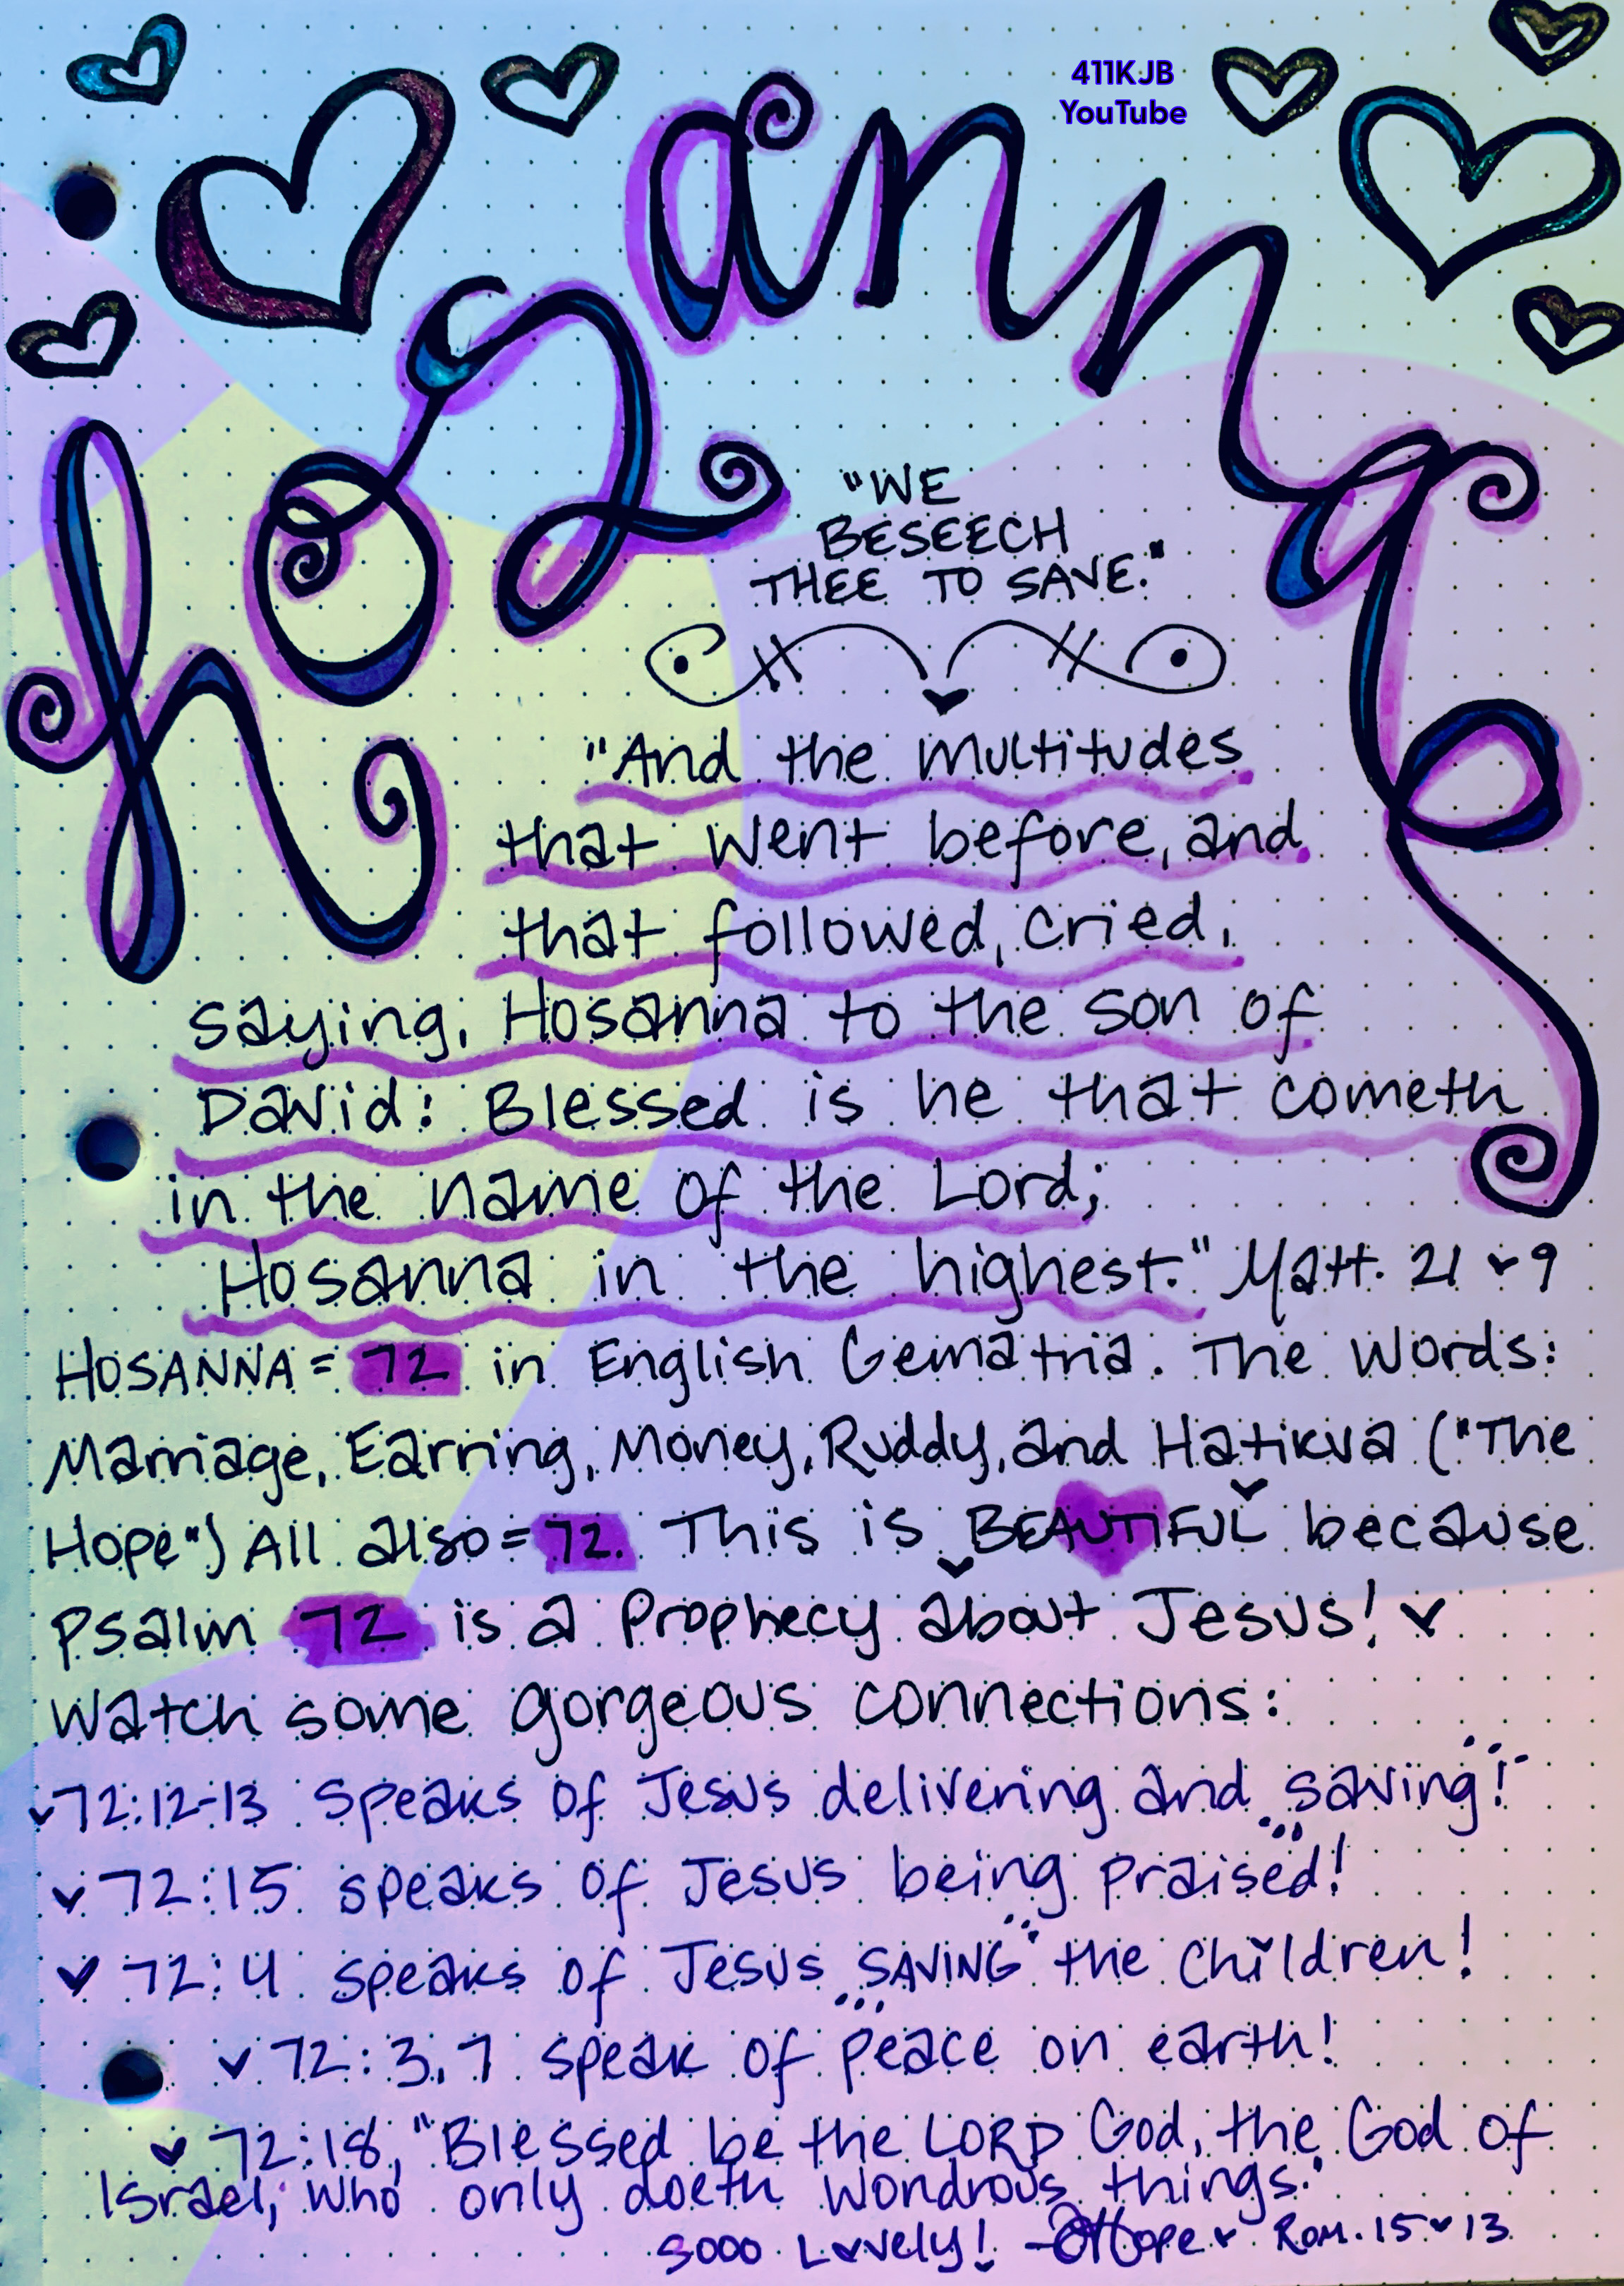 411KJB
YouTube
hosanna
"WE
BESEECH
THEE TO SAVE."
"And the multitudes
that went before, and
that followed, cried,
saying, Hosanna to the son of
David: Blessed is he that cometh
in the name of the Lord;
Hosanna in the highest." Matt. 21 ♥ 9
HOSANNA = 72 in English Gematria. The Words:
Marriage, Earring, Money, Ruddy, and Hatikva ("The
Hope") All also = 72. This is BEAUTIFUL because
Psalm 72 is a Prophecy about Jesus! ♥
Watch some gorgeous connections:
♥ 72:12-13 speaks of Jesus delivering and saving!
♥ 72:15 speaks of Jesus being praised!
♥ 72:4 speaks of Jesus SAVING the children!
♥ 72:3,7 speak of peace on earth!
♥ 72:18, "Blessed be the LORD God, the God of
Israel, who only doeth wondrous things."
sooo Lovely! - Hope ♥ Rom. 15 ♥ 13